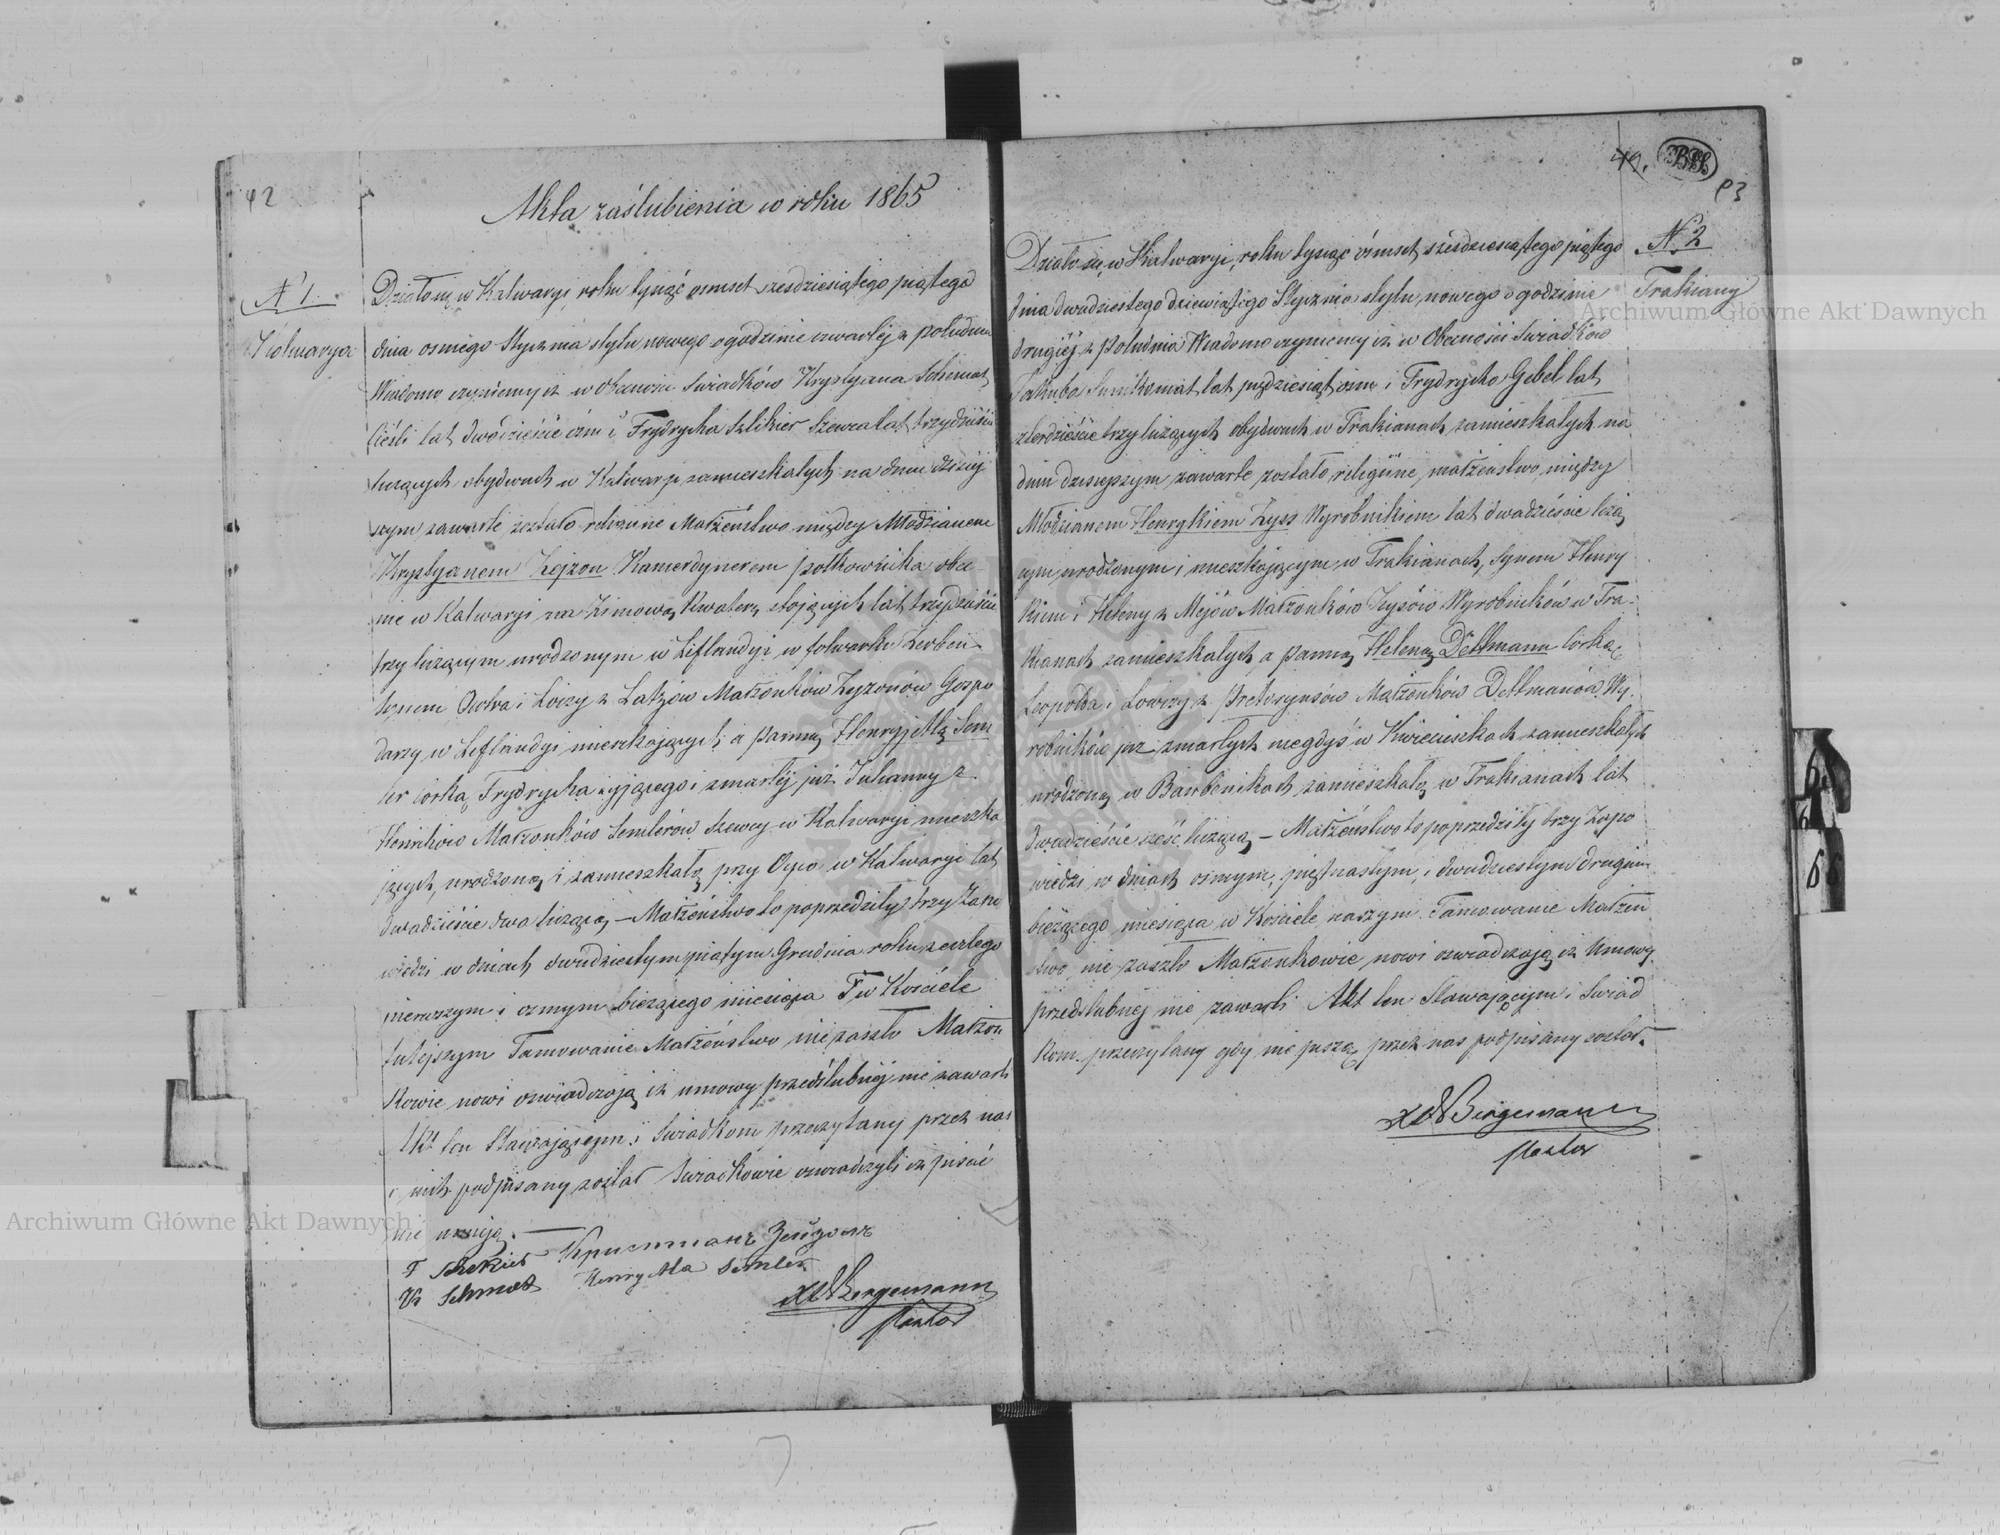 42
Akta zaślubienia w roku 1865
N 1.
Kalwarya
Działo się w Kalwaryi roku tysiąc ośmset sześdziesiątego piątego
dnia osmego Stycznia stylu nowego o godzinie czwartéj z południa
Wiadomo czyniemy iż w obecności Swiadków Krystyana Schmat
cieśli lat dwadzieście ośm i Frydrycha Szlikier Szewca lat trzydzieści
liczących obydwuch w Kalwaryi zamieszkałych na dniu dzisiej
szym zawarte zostało religijne Małżeństwo między Młodzianem
Krystyanem Zejzon Kamerdynerem połkownika obec
nie w Kalwaryi na Zimową Kwaterą stojących lat trzydzieście
trzy liczącym urodzonym w Liflandyi w folwarku
synem i z Małżonków Zyzonów Gospo
darzy w Liflandyi mieszkających; a panną Henryjettą Sem
ler córką Frydrycha żyjącego i zmarłéj już Julianny z
Henników Małżonków Semlerów Szewcy w Kalwaryi mieszka
jących, urodzoną i zamieszkałą przy Oycu w Kalwaryi lat
dwadzieście dwa liczącą, – Małżeństwo to poprzedziły trzy Zapo
wiedzi w dniach dwudziestym piątym Grudnia roku zeszłego
pierwszym i osmym bieżącego miesiąca w Kościele
tutejszym Tamowanie Małżeństwo nie zaszło Małżon
kowie nowi oswiadczają iż umowy przedślubnéj nie zawarli
Akt ten Stawającym i Swiadkom przeczytany przez nas
i nich podpisany został Swiadkowie oswiadczyli iż pisać
nie umieją. —
F Szlekier Кристианъ Зейзонъ
K Schmat Henryetta Semler
X A Bergemann
Pastor
49.
93
N 2
Trakiany
Działo się w Kalwaryi, roku tysiąc ośmset sześdziesiątego piątego
dnia dwudziestego dziewiątego Stycznia stylu nowego o godzinie
drugiéj z południa Wiadomo czyniemy iż w Obecności Swiadków
Jakuba lat piędziesiąt ośm i Frydrycha Gebel lat
czterdzieście trzy liczących obydwuch w Trakianach zamieszkałych na
dniu dzisiejszym zawarte zostało religijne małżeństwo między
Młodzianem Henrykiem Zyss Wyrobnikiem lat dwadzieście liczą
cym, urodzonym i mieszkającym w Trakianach, Synem Henry
kiem i Heleny z Mejów Małżonków Zysów Wyrobników w Tra-
kianach zamieszkałych a panną Heleną Dettmann córką
Leopolda i Lowizy z Małżonków Dettmanów Wy-
robników już zmarłych niegdyś w Kwieciszkach zamieszkałych
urodzoną w zamieszkałą w Trakianach lat
dwadzieście sześć liczącą – Małżeństwo to poprzedziły trzy Zapo
wiedzi w dniach osmym, piętnastym i dwudziestym drugim
bieżącego miesiąca w Kościele naszym. Tamowanie Małżeń
stwo nie zaszło Małżonkowie nowi oswiadczają iż Umowy
przedslubnéj nie zawarli Akt ten Stawającym i Swiad
kom przeczytany gdy nie piszą, przez nas podpisany został.
X A Bergemann
Pastor
Archiwum Główne Akt Dawnych
Archiwum Główne Akt Dawnych